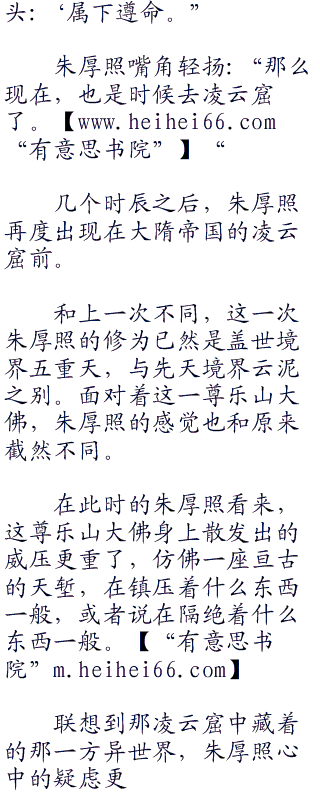 头：‘属下遵命。”
朱厚照嘴角轻扬：“那么
现在，也是时候去凌云窟
了。【www.heihei66.com
“有意思书院”】“
几个时辰之后，朱厚照
再度出现在大隋帝国的凌云
窟前。
和上一次不同，这一次
朱厚照的修为已然是盖世境
界五重天，与先天境界云泥
之别。面对着这一尊乐山大
佛，朱厚照的感觉也和原来
截然不同。
在此时的朱厚照看来，
这尊乐山大佛身上散发出的
威压更重了，仿佛一座亘古
的天堑，在镇压着什么东西
一般，或者说在隔绝着什么
东西一般。【“有意思书
院”m.heihei66.com】
联想到那凌云窟中藏着
的那一方异世界，朱厚照心
中的疑虑更